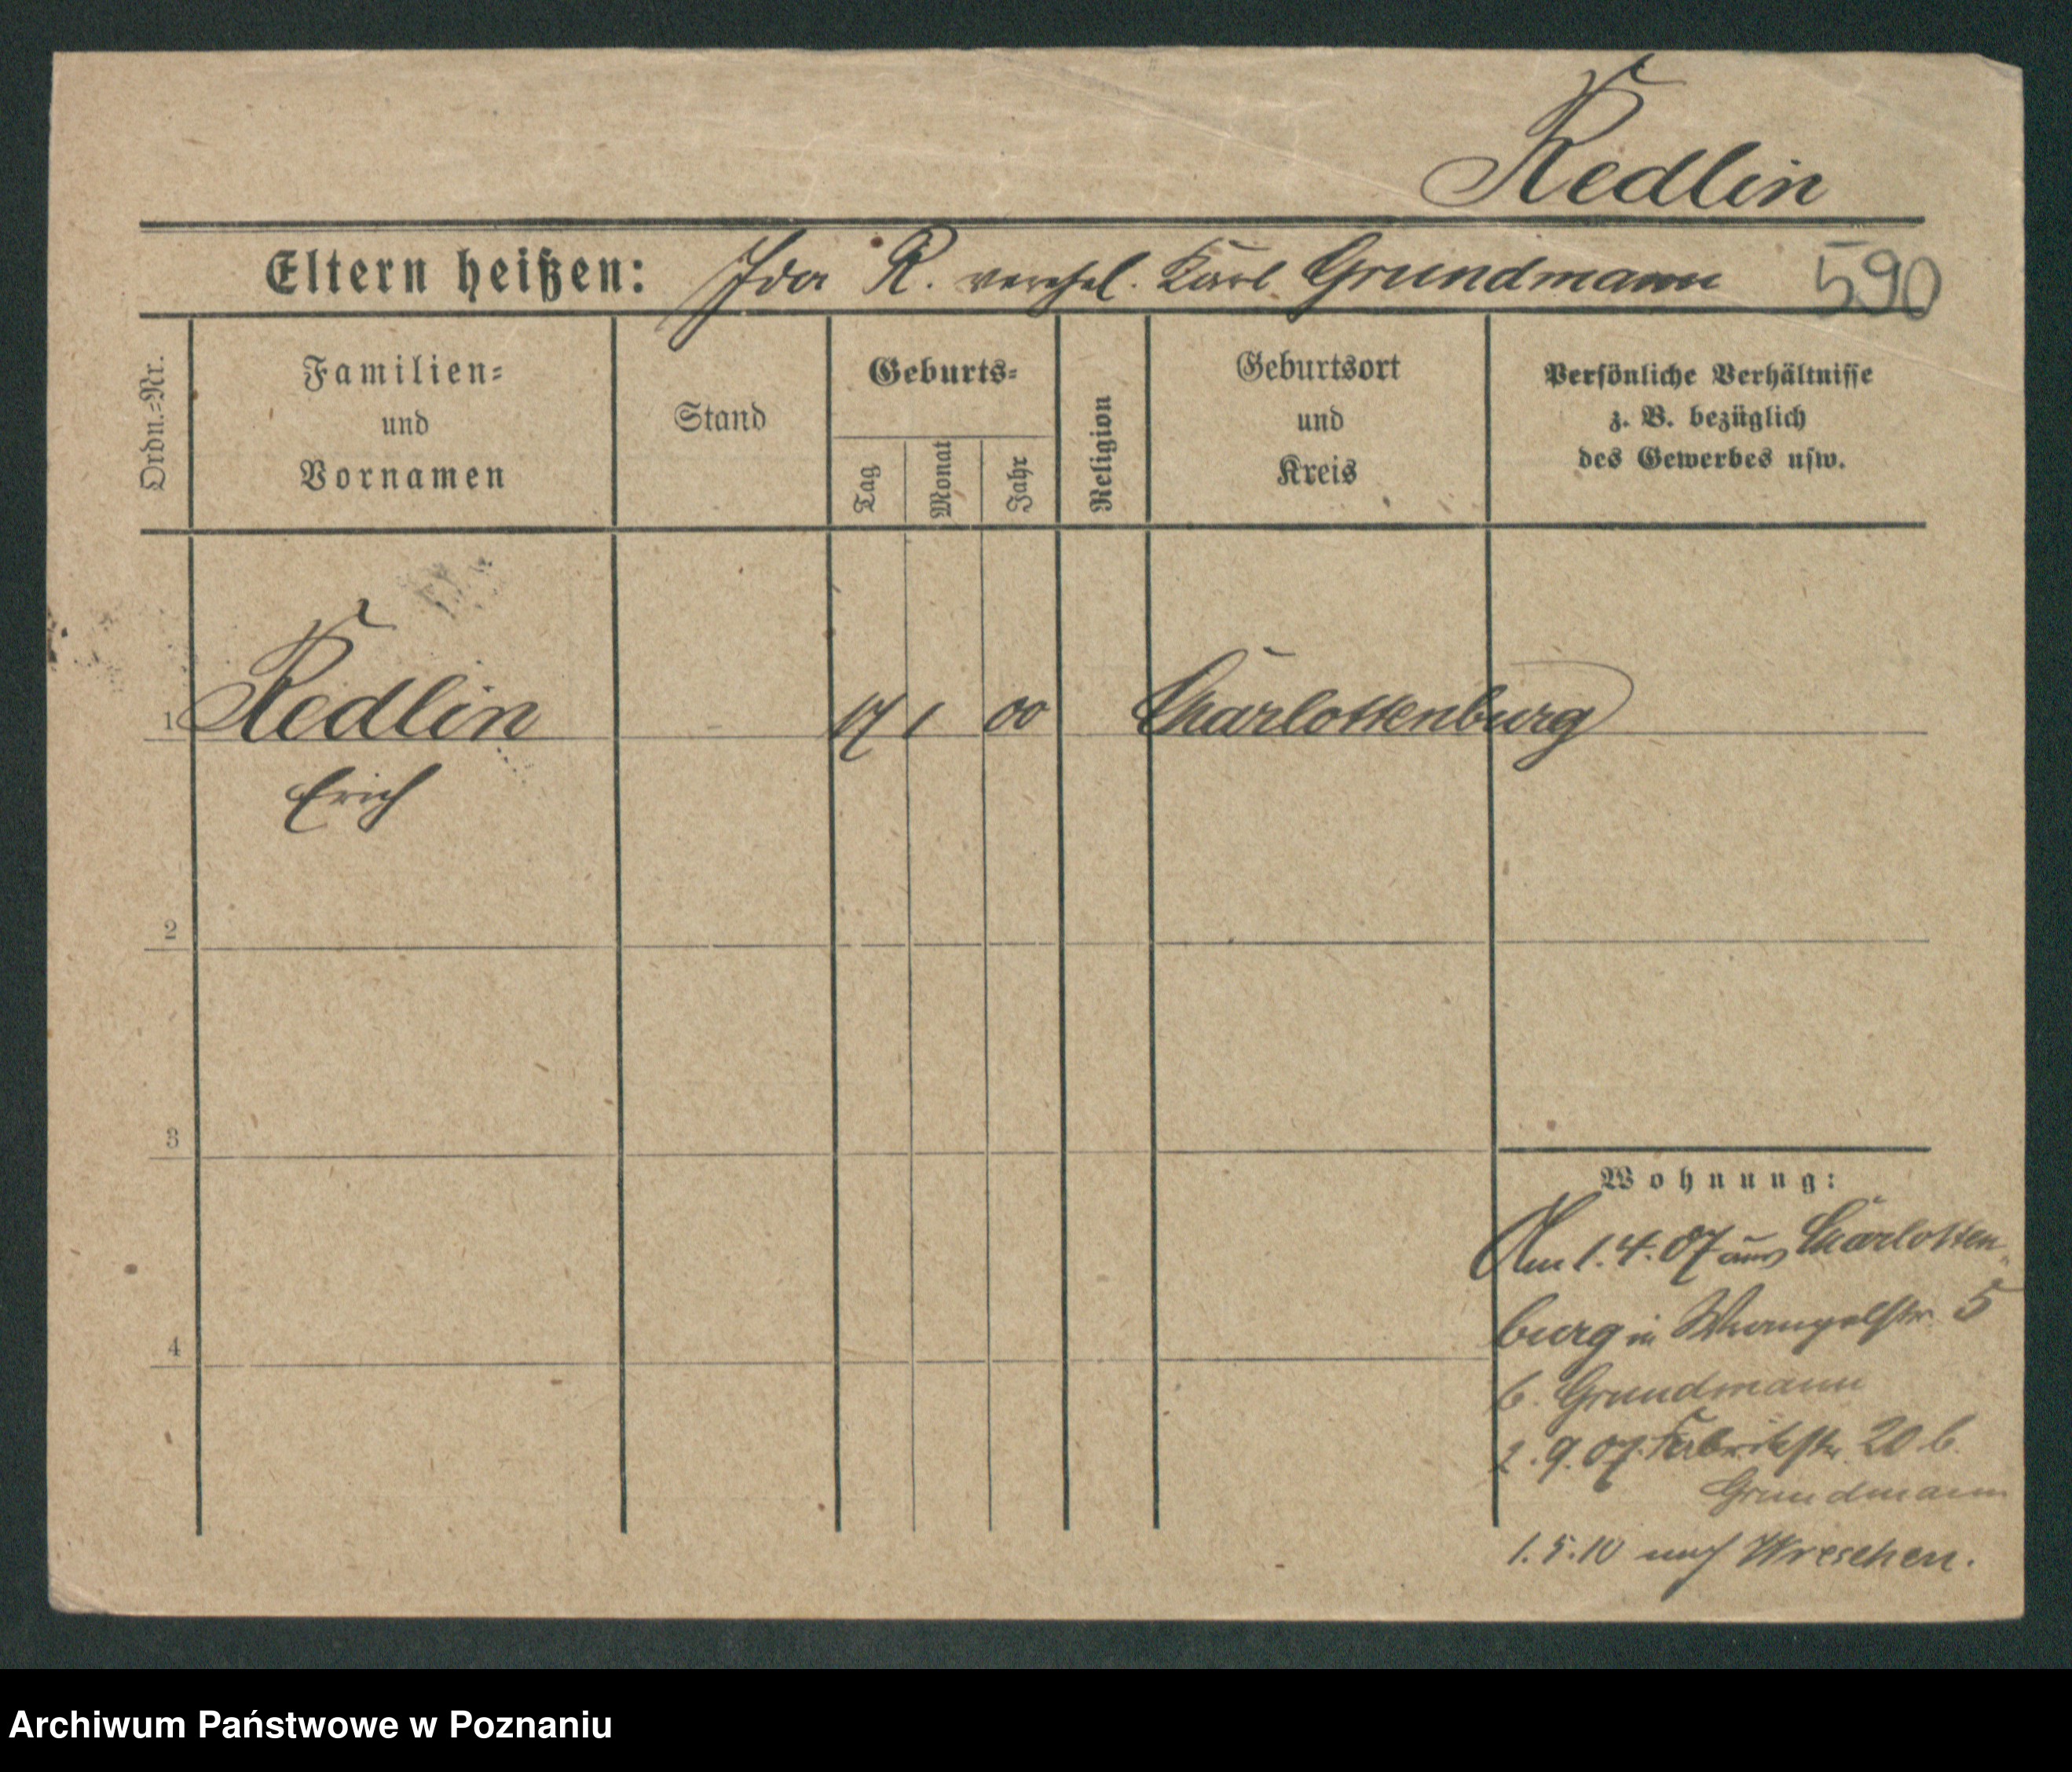 Redlin
Eltern heißen: Ida R. verehel. Karl Grundmann 590
Ordn.=Nr.
Familien=
und
Vornamen
Stand
Geburts=
Tag
Monat
Jahr
Religion
Geburtsort
und
Kreis
Persönliche Verhältnisse
z. B. bezüglich
des Gewerbes usw.
1 Redlin 1 00 Charlottenburg
Erich
2
3
4
Wohnung:
Am 1.4.07 aus Charlotten
burg in Wrangelstr. 5
b. Grundmann
2.9.07. Fabrikstr. 20 b.
Grundmann
1.5.10 nach Wreschen.
Archiwum Państwowe w Poznaniu